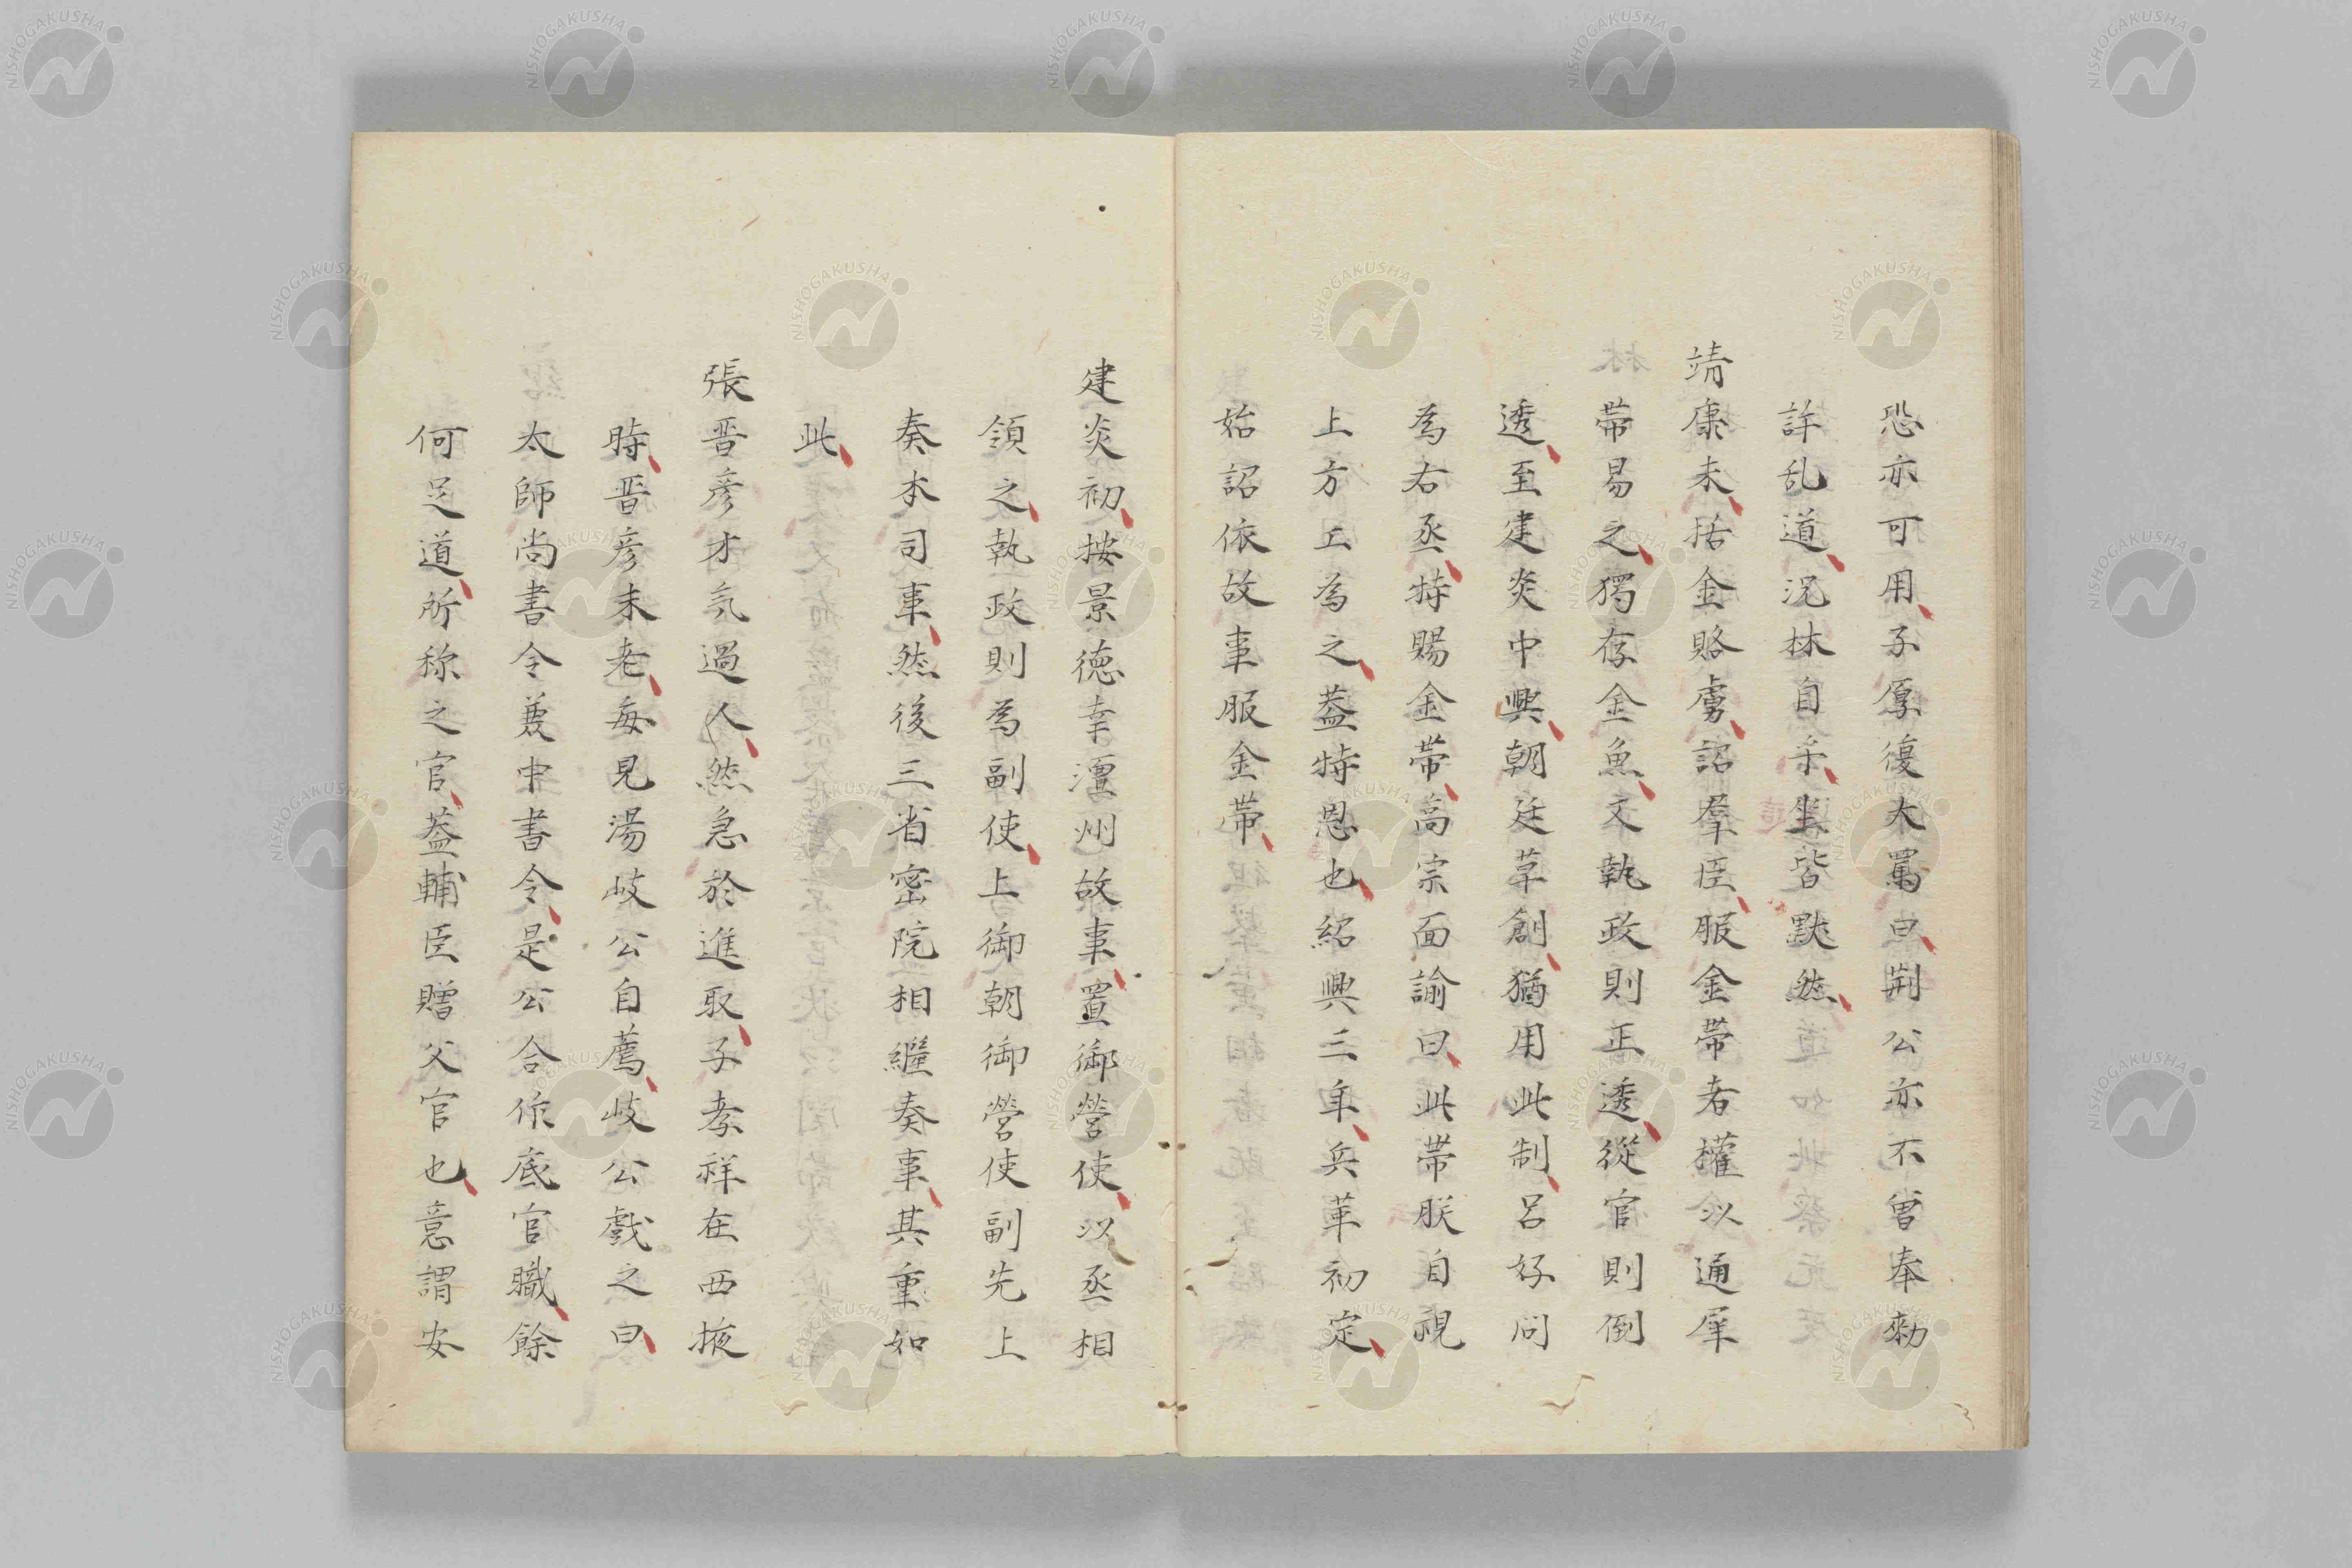 恐亦可用子厚復大罵曰荆公亦不曾奉勑
詳乱道況林自乎坐皆默然
靖康末括金賂虜詔羣臣服金帯者權以通犀
帯易之獨存金魚文執政則正透從官則倒
透至建炎中興朝廷草創猶用此制呂好问
為右丞特賜金帯高宗面諭曰此帯朕自視
上方工為之葢特恩也紹興三年兵革初定
始詔依故事服金帯
建炎初按景徳幸澶州故事置御營使以丞相
領之執政則為副使上御朝御營使副先上
奏本司事然後三省密院相繼奏事其重如
此
張晋彦才氣過人然急於進取子孝祥在西掖
時晋彦未老每見湯岐公自薦岐公戲之曰
太師尚書令兼中書令是公合作底官職餘
何足道所称之官葢輔臣贈父官也意謂安
NISHOGAKUSHA